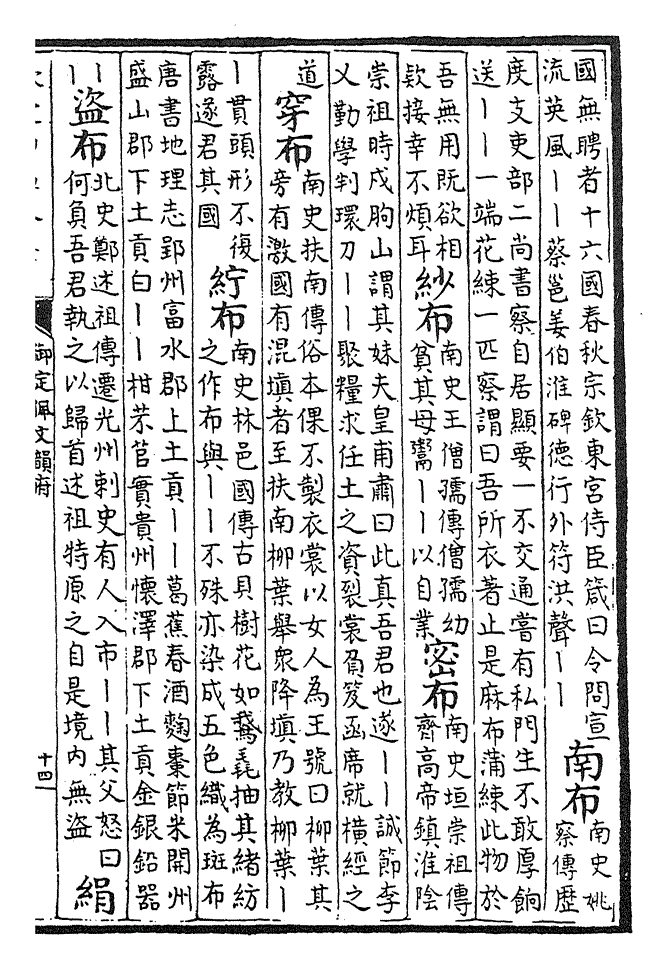 國無聘者十六國春秋宗欽東宮侍臣箴曰令問宣
流英風——蔡邕姜伯淮碑德行外符洪聲——
南布
南史姚
察傳歷
度支吏部二尚書察自居顯要一不交通嘗有私門生不敢厚餉
送——一端花練一匹察謂曰吾所衣著止是麻布蒲練此物於
吾無用既欲相
欵接幸不煩耳
紗布
南史王僧孺傳僧孺幼
貧其母鬻——以自業
密布
南史垣崇祖傳
齊高帝鎮淮陰
崇祖時戍朐山謂其妹夫皇甫肅曰此真吾君也遂——誠節李
乂勤學判環刀——聚糧求任土之資裂裳負笈函席就橫經之
道
穿布
南史扶南傳俗本倮不製衣裳以女人為王號曰柳葉其
旁有激國有混填者至扶南柳葉舉衆降填乃教柳葉—
—貫頭形不復
露遂君其國
紵布
南史林邑國傳古貝樹花如鵞毳抽其緒紡
之作布與——不殊亦染成五色織為斑布
唐書地理志郢州富水郡上土貢——葛蕉春酒麴棗節米開州
盛山郡下土貢白——柑芣苢實貴州懷澤郡下土貢金銀鉛器
—
—
盜布
北史鄭述祖傳遷光州刺史有人入市——其父怒曰
何負吾君執之以歸首述祖特原之自是境内無盜
絹
御定佩文韻府
十四